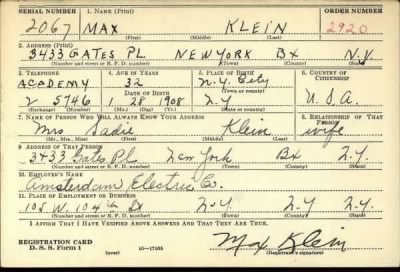 SERIAL NUMBER 1. NAME (Print) ORDER NUMBER
2067 MAX KLEIN 2920
(First) (Middle) (Last)
2. ADDRESS (Print)
3433 GATES PL NEW YORK BX N.Y.
(Number and street or R. F. D. number) (Town) (County) (State)
3. TELEPHONE 4. AGE IN YEARS 5. PLACE OF BIRTH 6. COUNTRY OF CITIZENSHIP
ACADEMY 32 N.Y. City
DATE OF BIRTH (Town or county)
2 5746 1 28 1908 N.Y U.S.A.
(Exchange) (Number) (Mo.) (Day) (Yr.) (State or country)
7. NAME OF PERSON WHO WILL ALWAYS KNOW YOUR ADDRESS 8. RELATIONSHIP OF THAT PERSON
Mrs Sadie Klein wife
(Mr., Mrs., Miss) (First) (Middle) (Last)
9. ADDRESS OF THAT PERSON
3433 Gates Pl New York Bx N.Y.
(Number and street or R. F. D. number) (Town) (County) (State)
10. EMPLOYER'S NAME
Amsterdam Electric Co.
11. PLACE OF EMPLOYMENT OR BUSINESS
105 W. 104th St N.Y N.Y. N.Y.
(Number and street or R. F. D. number) (Town) (County) (State)
I AFFIRM THAT I HAVE VERIFIED ABOVE ANSWERS AND THAT THEY ARE TRUE.
REGISTRATION CARD
D. S. S. Form 1 (over) 16—17105 Max Klein
(Registrant's signature)